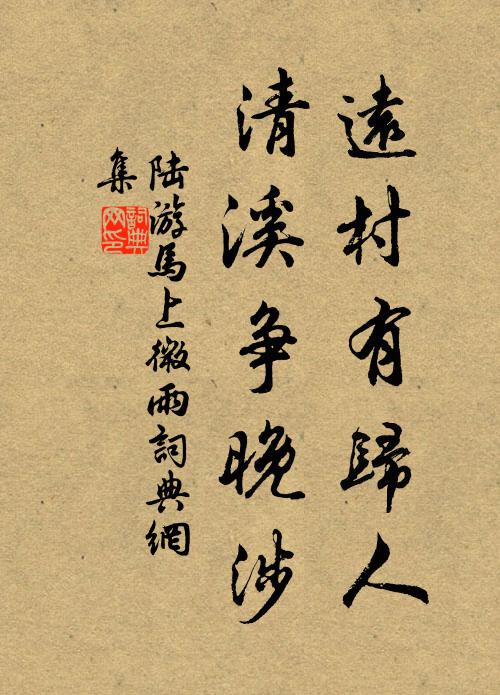 遠村有歸人
清溪争晚涉
陸游馬上微雨詞典網
集
詞典
网印